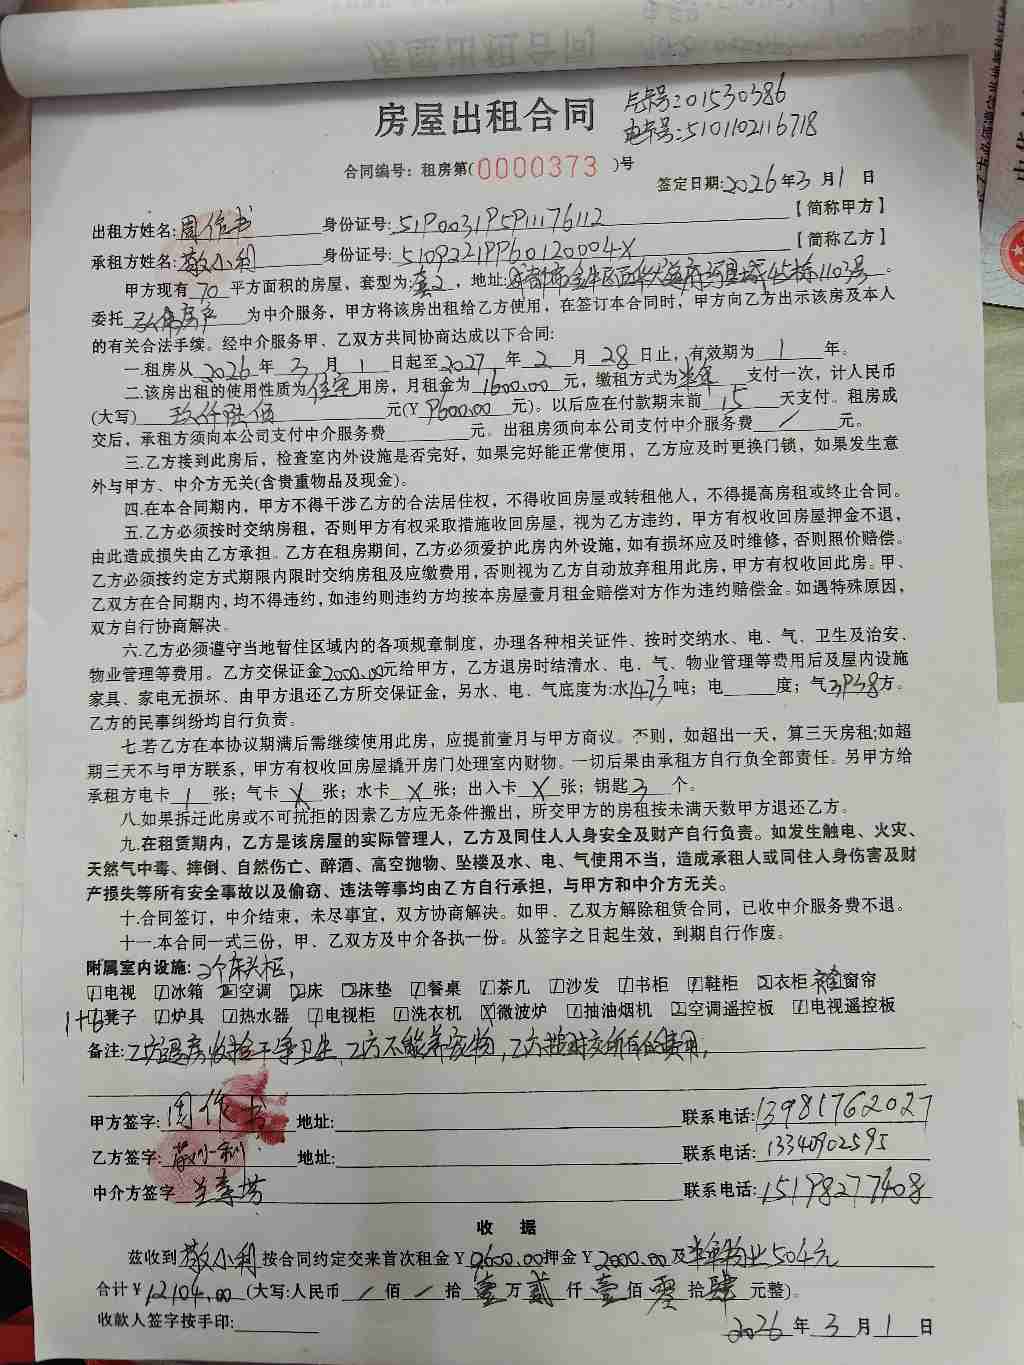 房屋出租合同
气卡号:01530386
电卡号:5101102116718
合同编号：租房第(0000373)号
签定日期:2026年3月1日
出租方姓名:周作书 身份证号: 【简称甲方】
承租方姓名:敬小利 身份证号: 【简称乙方】
甲方现有70平方面积的房屋，套型为套2，地址:成都市金牛区 45栋1103号。
委托 为中介服务，甲方将该房出租给乙方使用，在签订本合同时，甲方向乙方出示该房及本人
的有关合法手续。经中介服务甲、乙双方共同协商达成以下合同:
一.租房从2026年3月1日起至2027年2月28日止，有效期为1年。
二.该房出租的使用性质为住宅用房，月租金为1600.00元，缴租方式为半年支付一次，计人民币
(大写)玖仟陆佰元(¥9600.00元)。以后应在付款期末前15天支付。租房成
交后，承租方须向本公司支付中介服务费 元。出租房须向本公司支付中介服务费/元。
三.乙方接到此房后，检查室内外设施是否完好，如果完好能正常使用，乙方应及时更换门锁，如果发生意
外与甲方、中介方无关(含贵重物品及现金)。
四.在本合同期内，甲方不得干涉乙方的合法居住权，不得收回房屋或转租他人，不得提高房租或终止合同。
五.乙方必须按时交纳房租，否则甲方有权采取措施收回房屋，视为乙方违约，甲方有权收回房屋押金不退，
由此造成损失由乙方承担。乙方在租房期间，乙方必须爱护此房内外设施，如有损坏应及时维修，否则照价赔偿。
乙方必须按约定方式期限内限时交纳房租及应缴费用，否则视为乙方自动放弃租用此房，甲方有权收回此房。甲、
乙双方在合同期内，均不得违约，如违约则违约方均按本房屋壹月租金赔偿对方作为违约赔偿金。如遇特殊原因，
双方自行协商解决。
六.乙方必须遵守当地暂住区域内的各项规章制度，办理各种相关证件、按时交纳水、电、气、卫生及治安、
物业管理等费用。乙方交保证金2000.00元给甲方，乙方退房时结清水、电、气、物业管理等费用后及屋内设施
家具、家电无损坏、由甲方退还乙方所交保证金，另水、电、气底度为:水1473吨；电 度；气3938方。
乙方的民事纠纷均自行负责。
七.若乙方在本协议期满后需继续使用此房，应提前壹月与甲方商议。否则，如超出一天，算三天房租;如超
期三天不与甲方联系，甲方有权收回房屋撬开房门处理室内财物。一切后果由承租方自行负全部责任。另甲方给
承租方电卡1张；气卡X张；水卡X张；出入卡X张；钥匙3个。
八.如果拆迁此房或不可抗拒的因素乙方应无条件搬出，所交甲方的房租按未满天数甲方退还乙方。
九.在租赁期内，乙方是该房屋的实际管理人，乙方及同住人人身安全及财产自行负责。如发生触电、火灾、
天然气中毒、摔倒、自然伤亡、醉酒、高空抛物、坠楼及水、电、气使用不当，造成承租人或同住人身伤害及财
产损失等所有安全事故以及偷窃、违法等事均由乙方自行承担，与甲方和中介方无关。
十.合同签订，中介结束，未尽事宜，双方协商解决。如甲、乙双方解除租赁合同，已收中介服务费不退。
十一.本合同一式三份，甲、乙双方及中介各执一份。从签字之日起生效，到期自行作废。
附属室内设施:2个床头柜，
1电视 1冰箱 2空调 2床 2床垫 1餐桌 1茶几 1沙发 1书柜 1鞋柜 2衣柜 窗帘
1+6凳子 1炉具 1热水器 1电视柜 1洗衣机 X微波炉 1抽油烟机 2空调遥控板 1电视遥控板
备注:乙方退房收拾干净卫生，乙方不能养宠物，乙方按时交所有的费用，
甲方签字:周作书 地址: 联系电话:13981762027
乙方签字:敬小利 地址: 联系电话:13340902595
中介方签字 联系电话:15198277408
收 据
兹收到敬小利按合同约定交来首次租金¥9600.00押金¥2000.00及半年物业504元
合计¥12104.00(大写:人民币/佰/拾壹万贰仟壹佰零拾肆元整)。
收款人签字按手印:
2026年3月1日